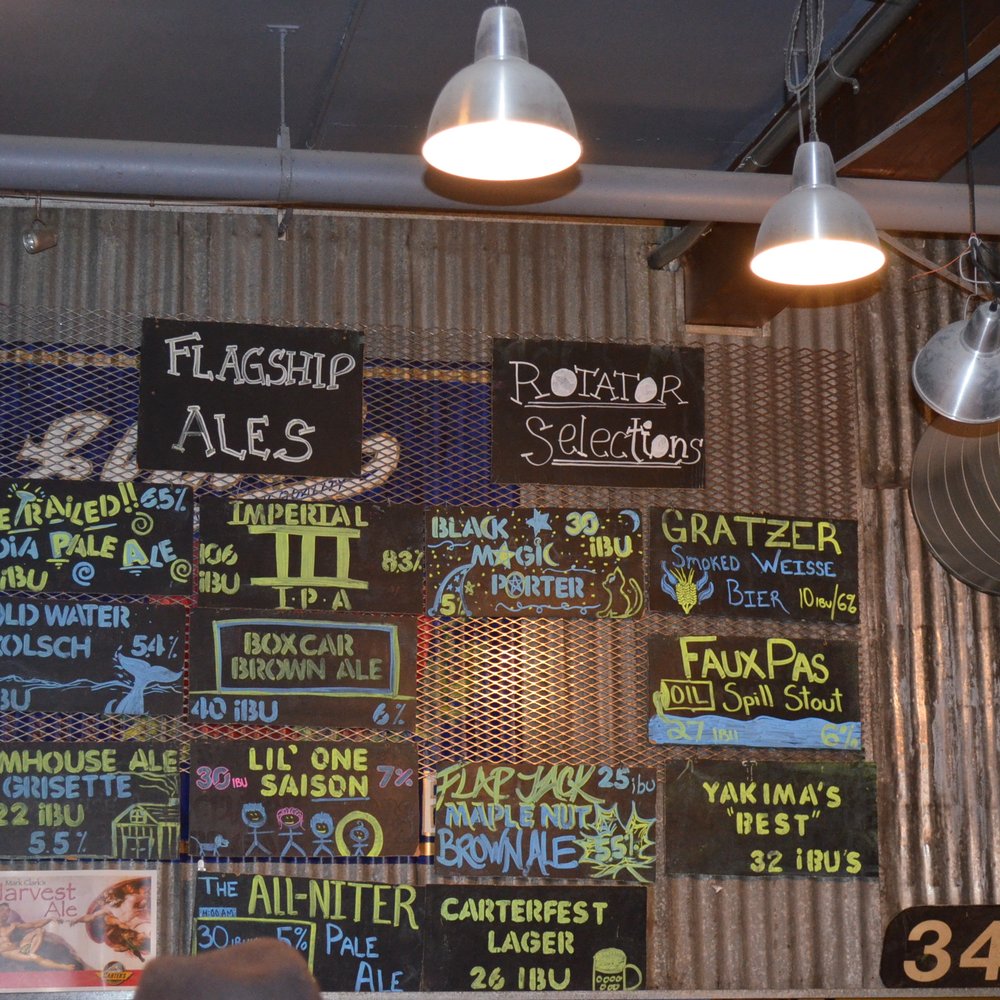 FLAGSHIP
ALES
ROTATOR
Selections
RAILED!! 6.5%
PALE ALE
IBU
IMPERIAL
III
106
IBU
8.3%
I.P.A
BLACK
MAGIC
PORTER
30
IBU
5%
GRATZER
SMOKED WEISSE
BIER 10 IBU/6%
OLD WATER
KOLSCH 5.4%
BU
BOXCAR
BROWN ALE
40 IBU 6%
FAUX PAS
OIL Spill Stout
27 IBU 6%
MHOUSE ALE
GRISETTE
22 IBU
5.5%
LIL' ONE
SAISON
30 IBU
7%
FLAP JACK 25 ibu
MAPLE NUT
BROWN ALE 5.5%
YAKIMA'S
"BEST"
32 IBU'S
Mark Clark's
Harvest
Ale
CARTER'S
THE ALL-NITER
4:00 AM
30 IBU 5% PALE
ALE
CARTERFEST
LAGER
26 IBU
34